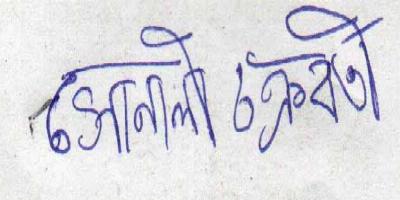 সোনালী চক্রবর্তী